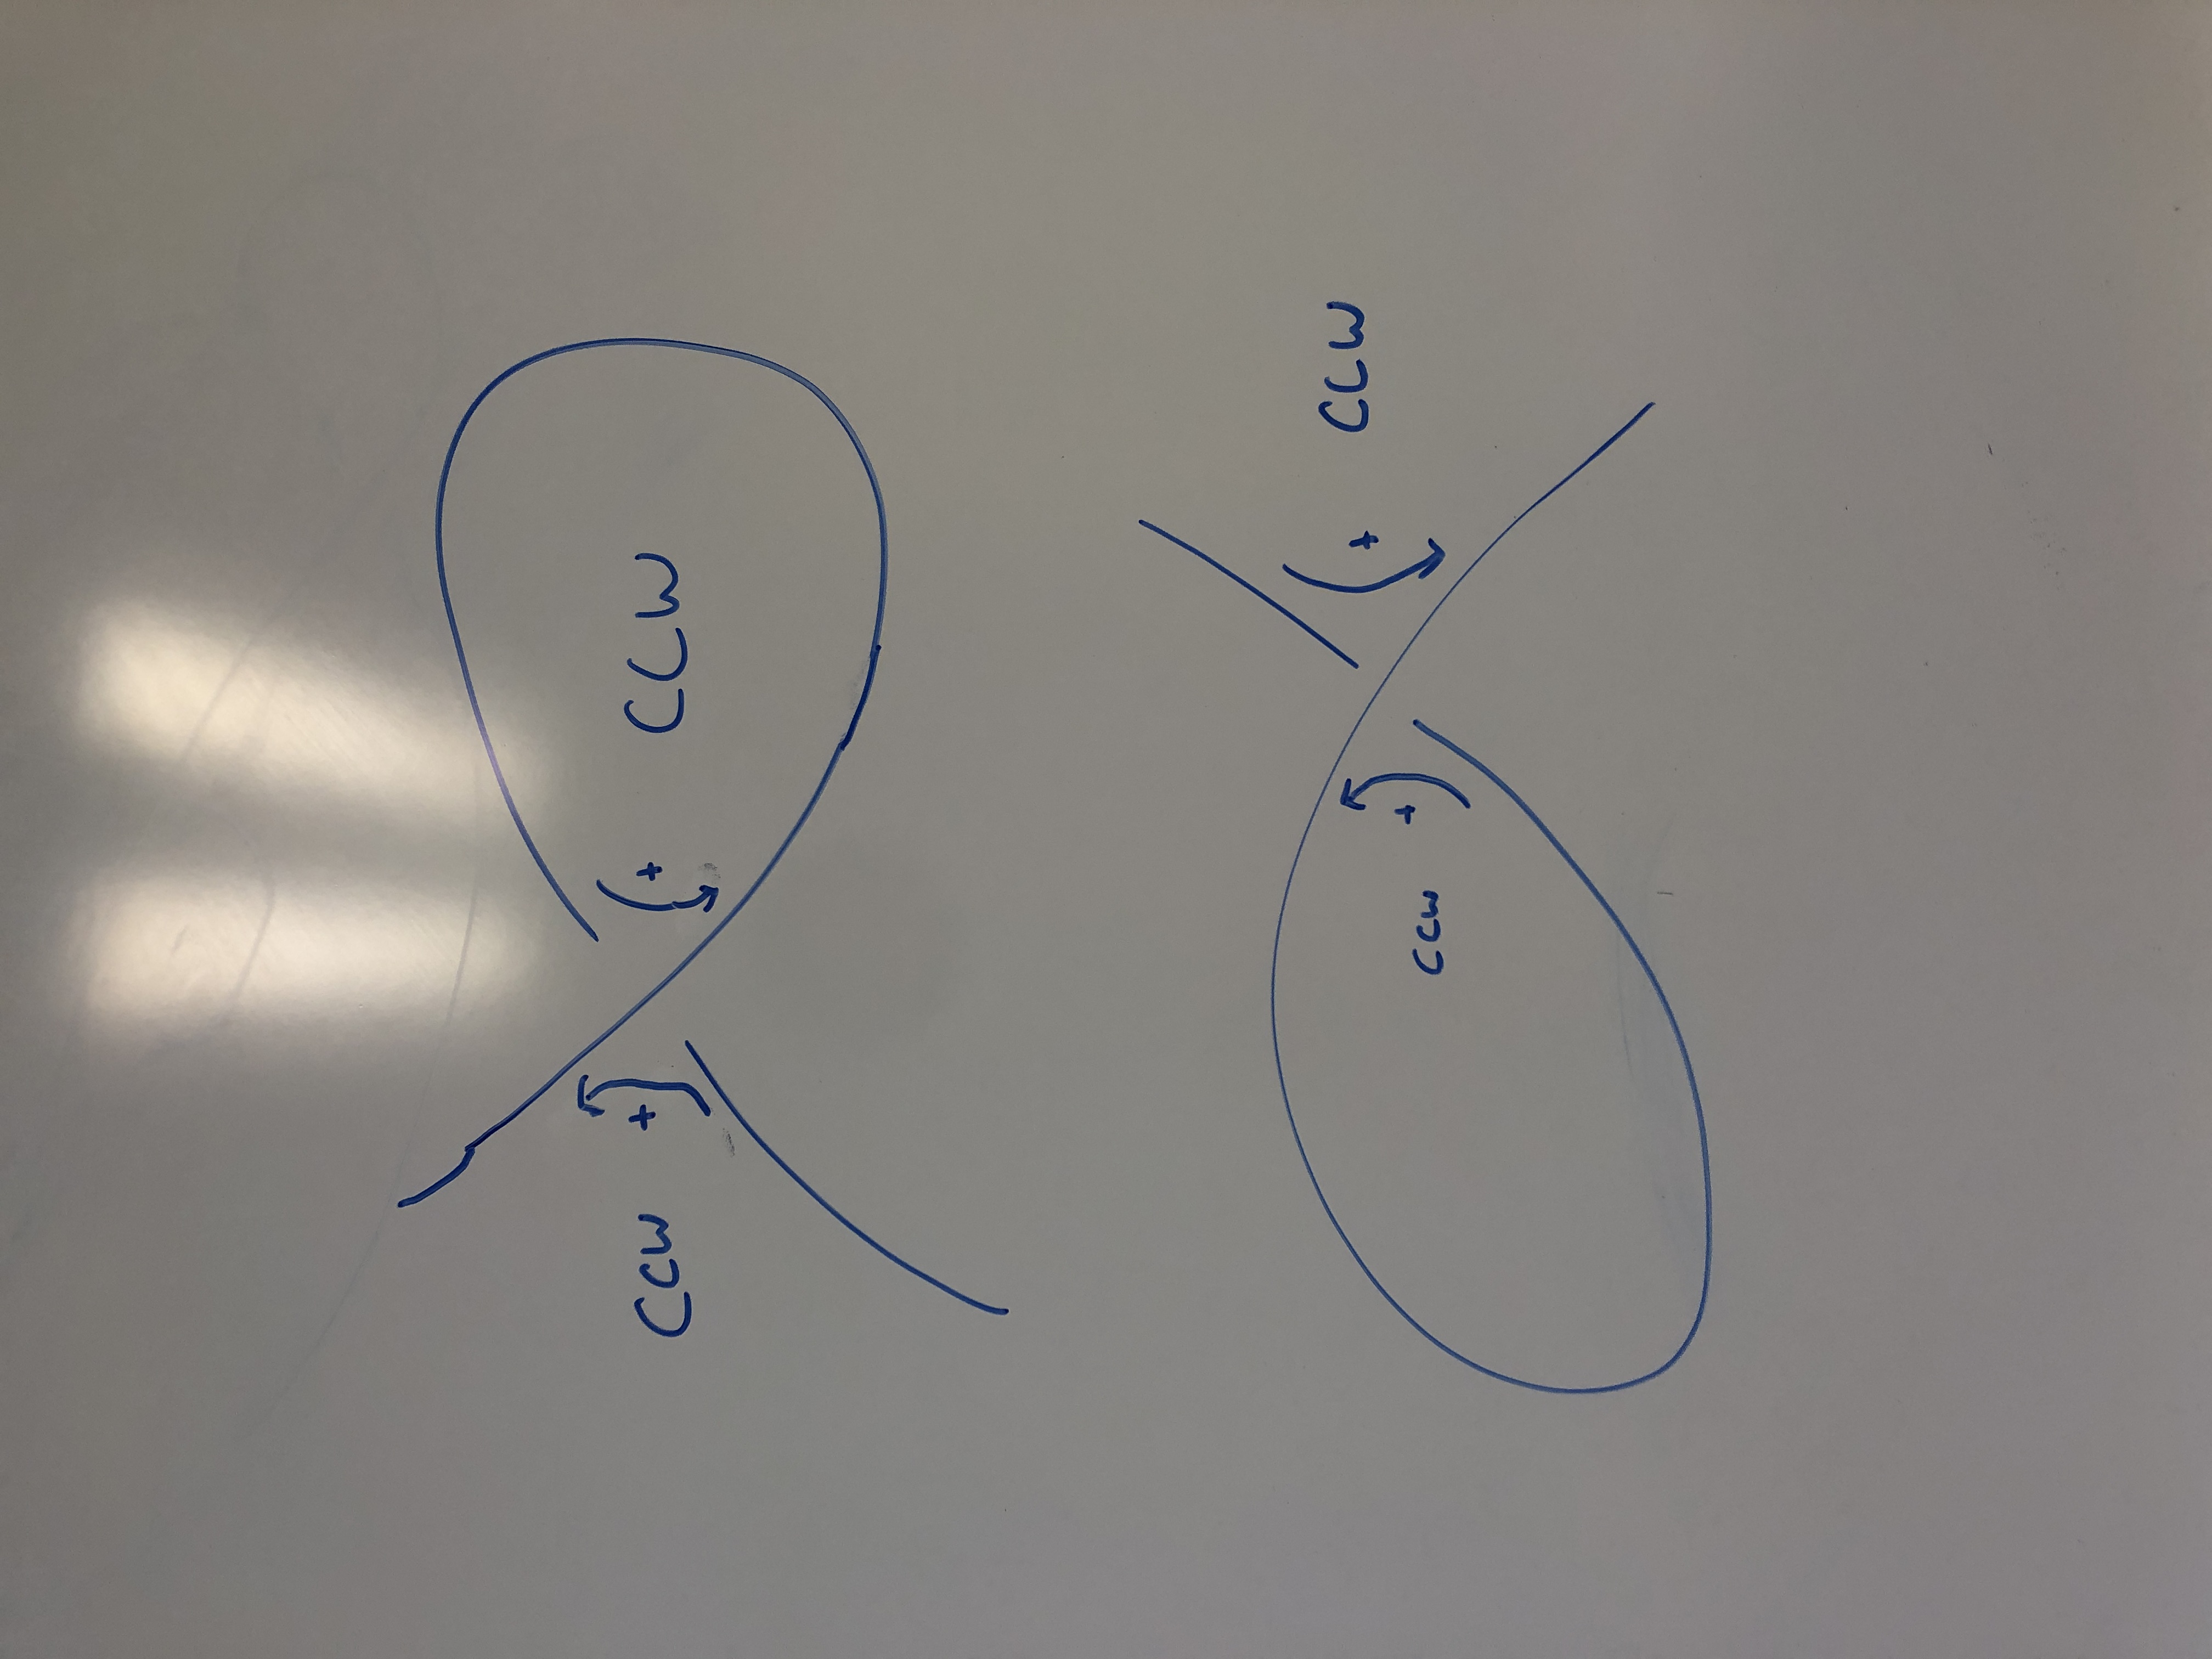 CCW + + CCW
+ CCW
CCW +